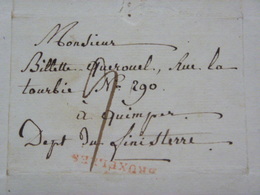 Monsieur
Billette Querouel, Rue la
tourbie No. 290
à Quimper
Dept du Finisterre
BRUXELLES